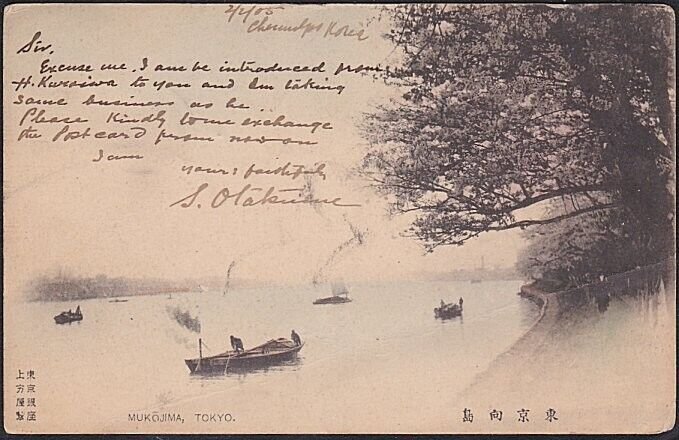 2/2/05
Chemulpo Korea
Sir,
Excuse me. I am be introduced from
H. Kuroiwa to you and Im taking
same business as he.
Please kindly to me exchange
the Postcard from now on
I am
yours faithfully
S.
東京銀座
上方屋製
MUKŌJIMA, TOKYO.
東京向島